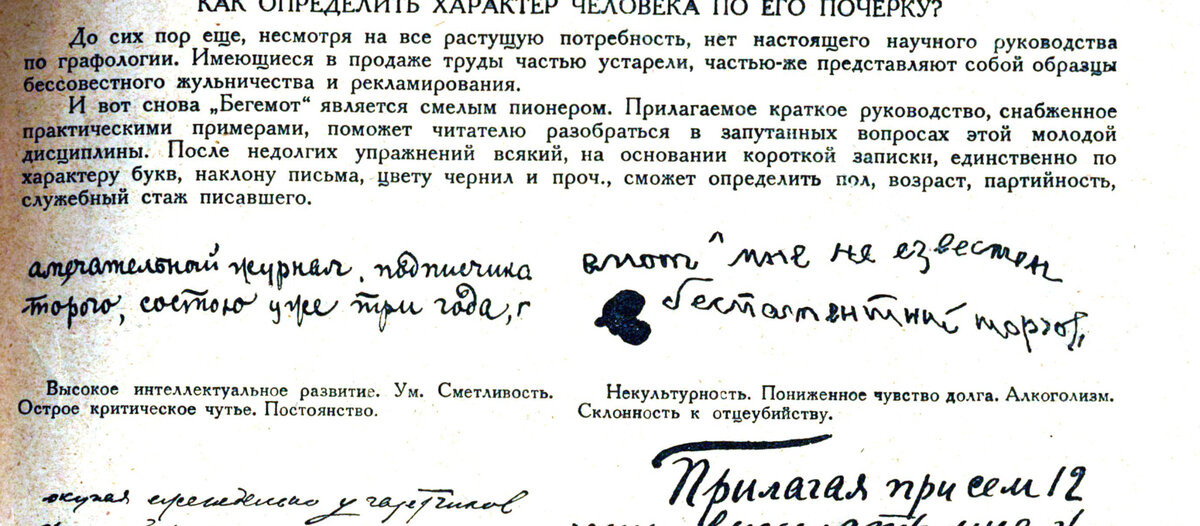 КАК ОПРЕДЕЛИТЬ ХАРАКТЕР ЧЕЛОВЕКА ПО ЕГО ПОЧЕРКУ?
До сих пор еще, несмотря на все растущую потребность, нет настоящего научного руководства
по графологии. Имеющиеся в продаже труды частью устарели, частью-же представляют собой образцы
бессовестного жульничества и рекламирования.
И вот снова „Бегемот“ является смелым пионером. Прилагаемое краткое руководство, снабженное
практическими примерами, поможет читателю разобраться в запутанных вопросах этой молодой
дисциплины. После недолгих упражнений всякий, на основании короткой записки, единственно по
характеру букв, наклону письма, цвету чернил и проч., сможет определить пол, возраст, партийность,
служебный стаж писавшего.
амечательный журнал, подписчика
торого, состою уже три года, г
мне не езвестен
беспатентний торгов,
Высокое интеллектуальное развитие. Ум. Сметливость.
Острое критическое чутье. Постоянство.
Некультурность. Пониженное чувство долга. Алкоголизм.
Склонность к отцеубийству.
окупая еженедельно у газетчиков
Прилагая при сем 12